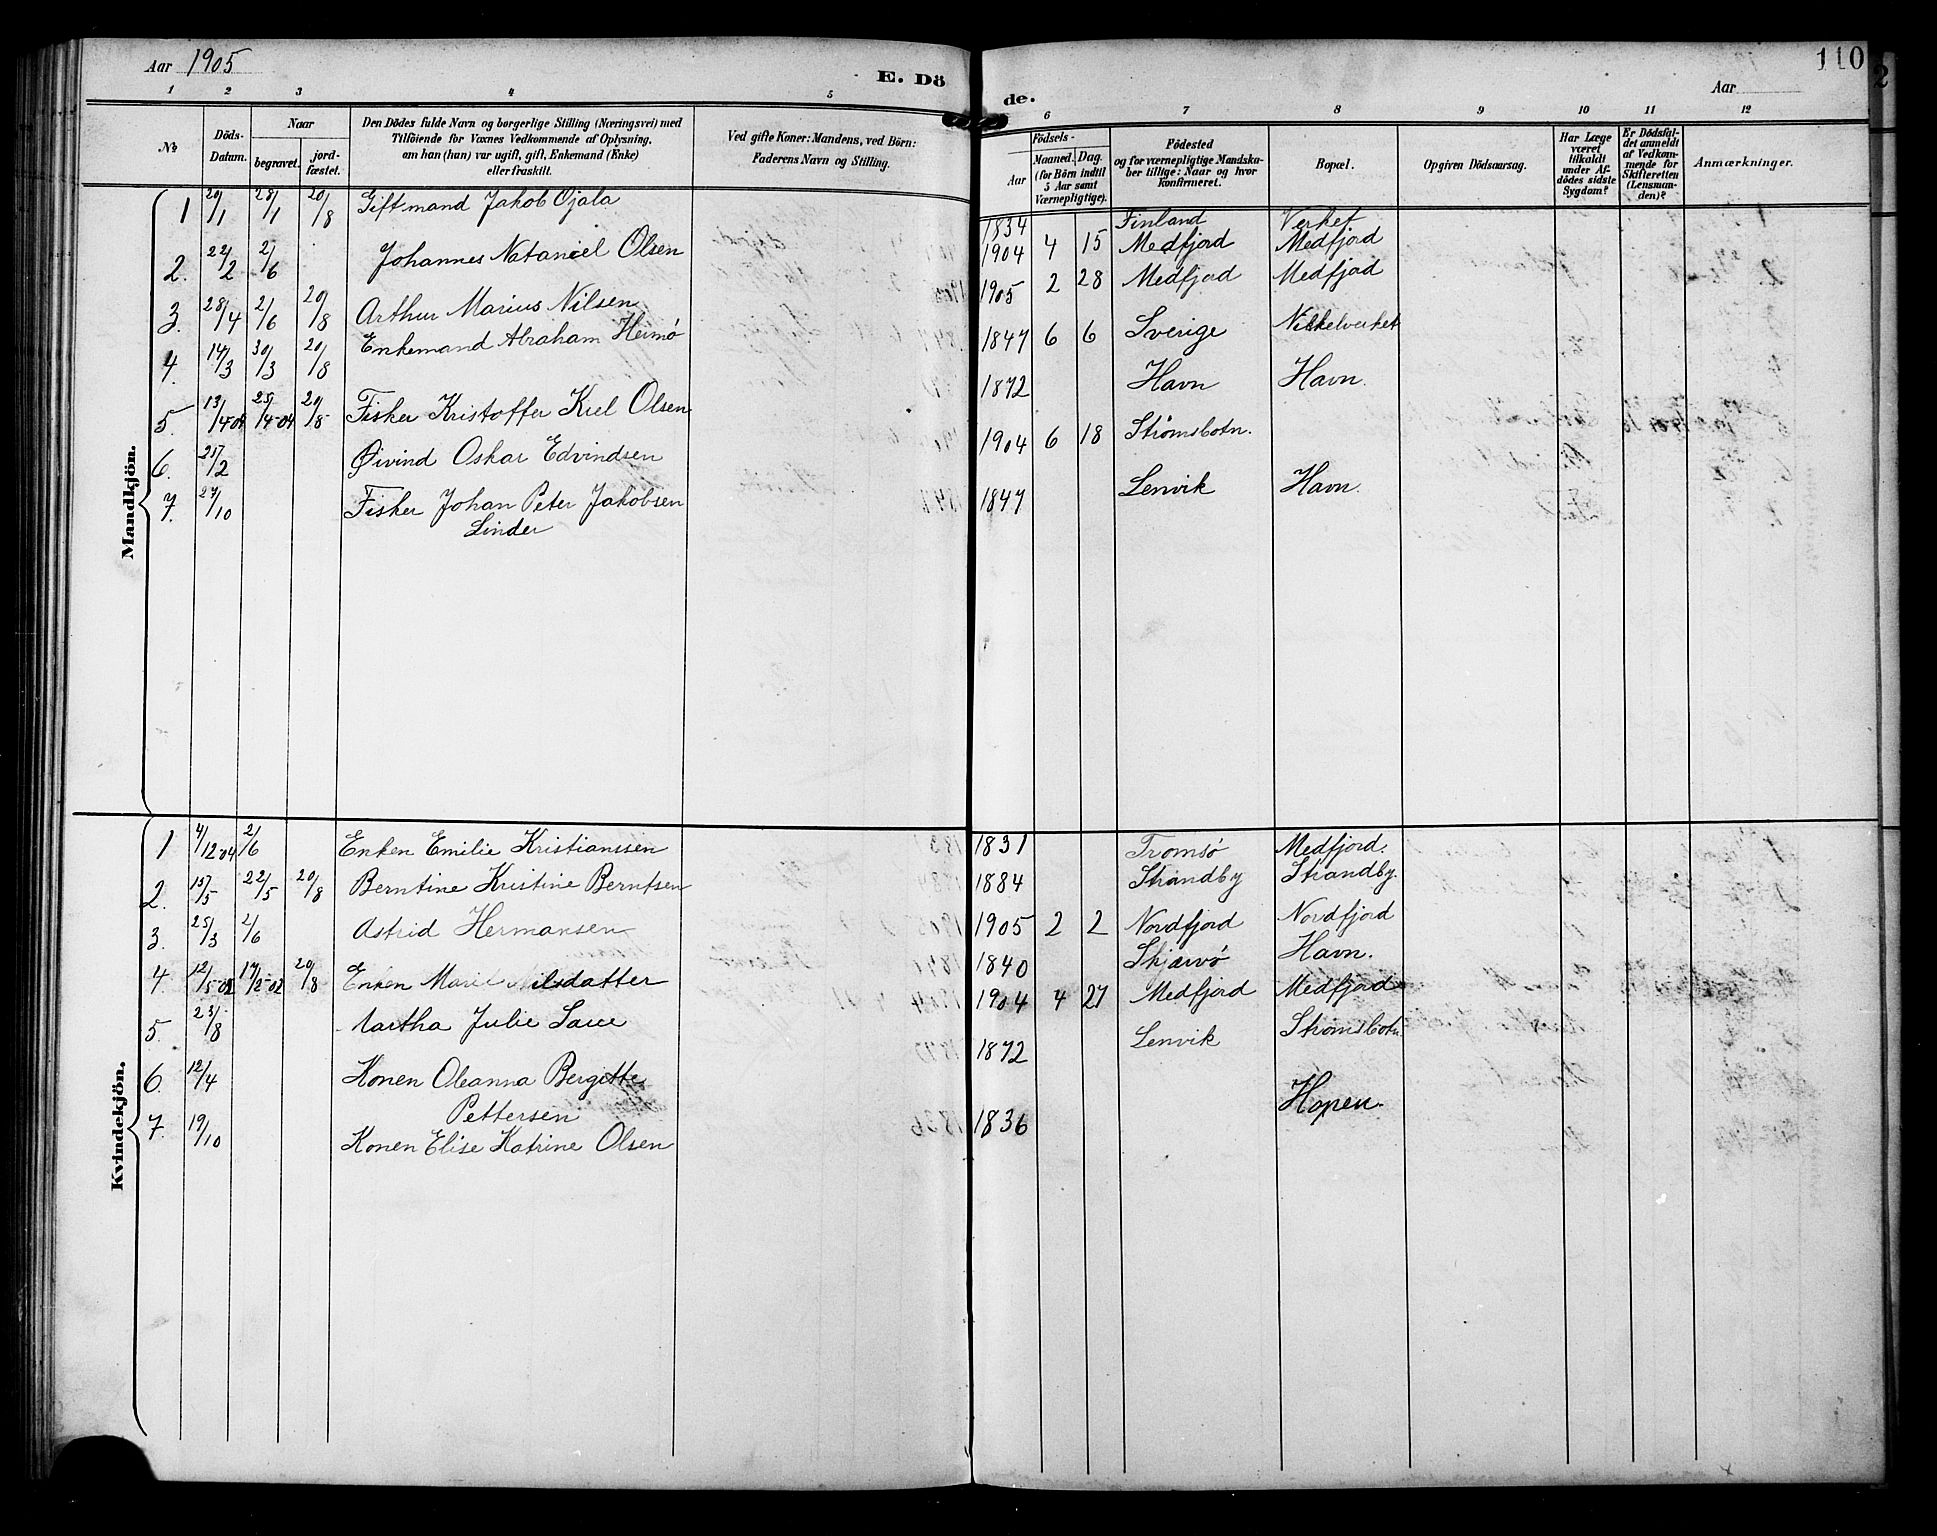 Aar 1905
E. Dö
1 2 3 4 5
№ Döds-Datum. Naar begravet. jord-fæstet. Den Dödes fulde Navn og borgerlige Stilling (Næringsvei) med Tilföiende for Voxnes Vedkommende af Oplysning, om han (hun) var ugift, gift, Enkemand (Enke) eller fraskilt. Ved gifte Koner: Mandens, ved Börn: Faderens Navn og Stilling.
Mandkjön.
1 20/1 28/1 20/8 Giftmand Jakob Ojala
2. 22/2 2/6 Johannes Nataniel Olsen
3. 28/4 2/6 20/8 Arthur Marius Nilsen
4. 14/3 30/3 20/8 Enkemand Abraham Heimø
5. 13/4-04 25/4-04 20/8 Fisker Kristoffer Kiel Olsen
6. 25/2 Øivind Oskar Edvindsen
7. 27/10 Fisker Johan Peter Jakobsen
Linder
Kvindekjön.
1 4/12 04 2/6 Enken Emilie Kristianssen
2. 15/5 22/5 20/8 Berntine Kristine Berntsen
3. 25/3 2/6 Astrid Hermansen
4 12/5-02 17/5-02 20/8 Enken Marie Nilsdatter
5. 23/8 Martha Julie
6. 12/4 Konen Oleanna Bergitte
Pettersen
7. 19/10 Konen Elise Katrine Olsen
110
de.
Aar
6 7 8 9 10 11 12
Födsels- Aar Maaned. Dag. (for Börn indtil 5 Aar samt Værnepligtige). Födested og for værnepligtige Mandskaber tillige: Naar og hvor konfirmeret. Bopæl. Opgiven Dödsaarsag. Har Læge været tilkaldt under Afdödes sidste Sygdom? Er Dödsfaldet anmeldt af Vedkommende for Skifteretten (Lensmanden)? Anmærkninger.
1834 Finland Verket
1904 4 15 Medfjord Medfjord
1905 2 28 Medfjord Medfjord
1847 6 6 Sverige Nikkelverket
1872 Havn Havn.
1904 6 18 Strømsbotn.
1847 Lenvik Havn.
1831 Tromsø Medfjord.
1884 Strandby Strandby.
1905 2 2 Nordfjord Nordfjord
1840 Skjærvø Havn.
1904 4 27 Medfjord Medfjord
1872 Lenvik Strømsbotn
1836 Hopen.